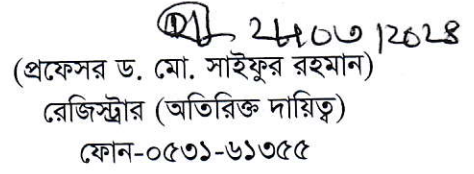 ২৪০৩/২০২৪
(প্রফেসর ড. মো. সাইফুর রহমান)
রেজিস্ট্রার (অতিরিক্ত দায়িত্ব)
ফোন-০৫৩১-৬১৩৫৫